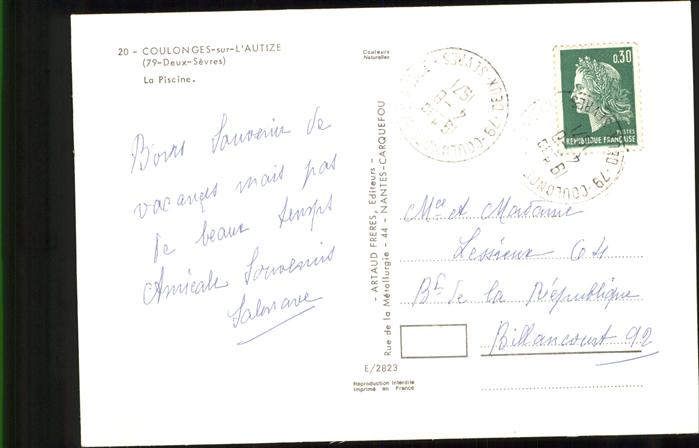 20 - COULONGES-sur-L'AUTIZE
(79-Deux-Sèvres)
La Piscine.
Couleurs
Naturelles
Bons Souvenir de
vacances mais pas
de beaux temps
Amicale Souvenirs
- ARTAUD FRERES, Editeurs -
Rue de la Métallurgie - 44 - NANTES-CARQUEFOU
E/2823
Reproduction Interdite
Imprimé en France
79-COULONGES
DEUX-SEVRES
1971
0,30
POSTES
REPUBLIQUE FRANÇAISE
79-COULONGES
Mr et Madame
Lessieux
Bd de la République
Billancourt 92